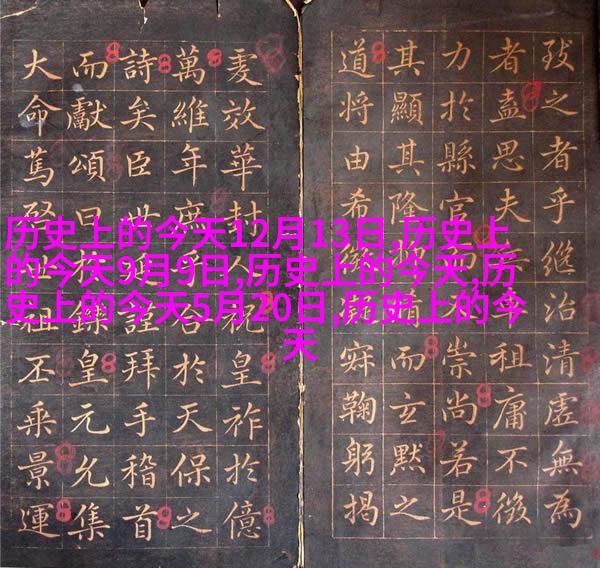 历史上的今天12月13日,历史上
的今天9月9日,历史上的今天,历
史上的今天5月20日,历史上的今
天
之者乎継治清虛無為
者盍思夫祖庸不徵
力於縣官而崇尚若是
其顯其隆而玄默之
道將由希寂鞠躬揭
效華封人祝皇祚於億
萬維年庶合於天保之
詩矣臣世謹拜手稽首
而獻頌曰於鑠皇元允集
大命篤啓世祖丕乗景運